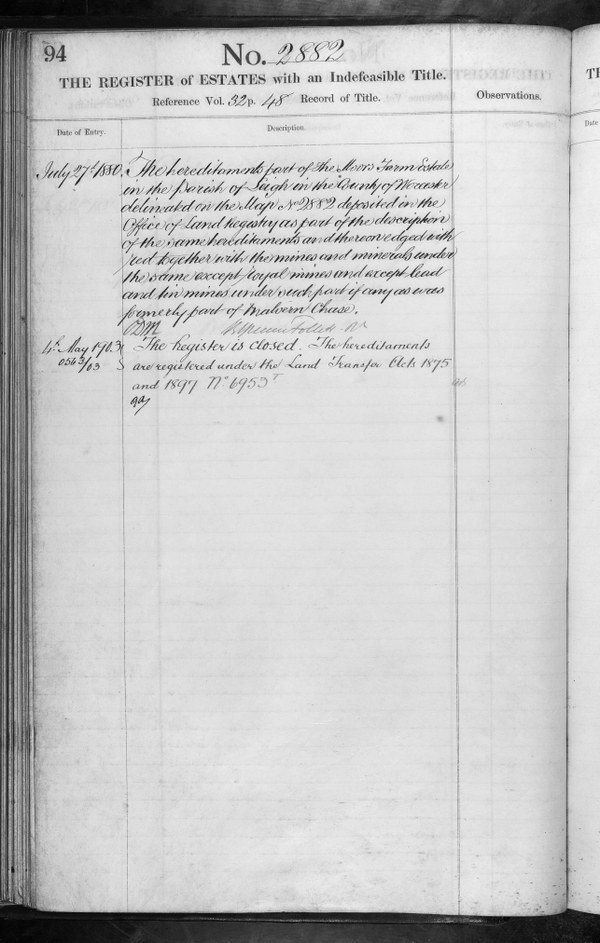 94
No. 2882
THE REGISTER of ESTATES with an Indefeasible Title.
Reference Vol. 32 p. 48 Record of Title.
Observations.
Date of Entry.
Description.
July 27th 1880. The hereditaments part of The Moors Farm Estate
in the Parish of Leigh in the County of Worcester
delineated on the Map No 2882 deposited in the
Office of Land Registry as part of the description
of the same hereditaments and thereon edged with
red together with the mines and minerals under
the same except royal mines and except lead
and tin mines under such part if any as was
formerly part of Malvern Chase.
Follett
4th May 1903
The Register is closed. The hereditaments
0563/03
are registered under the Land Transfer Acts 1875
and 1897 No 6953
Date